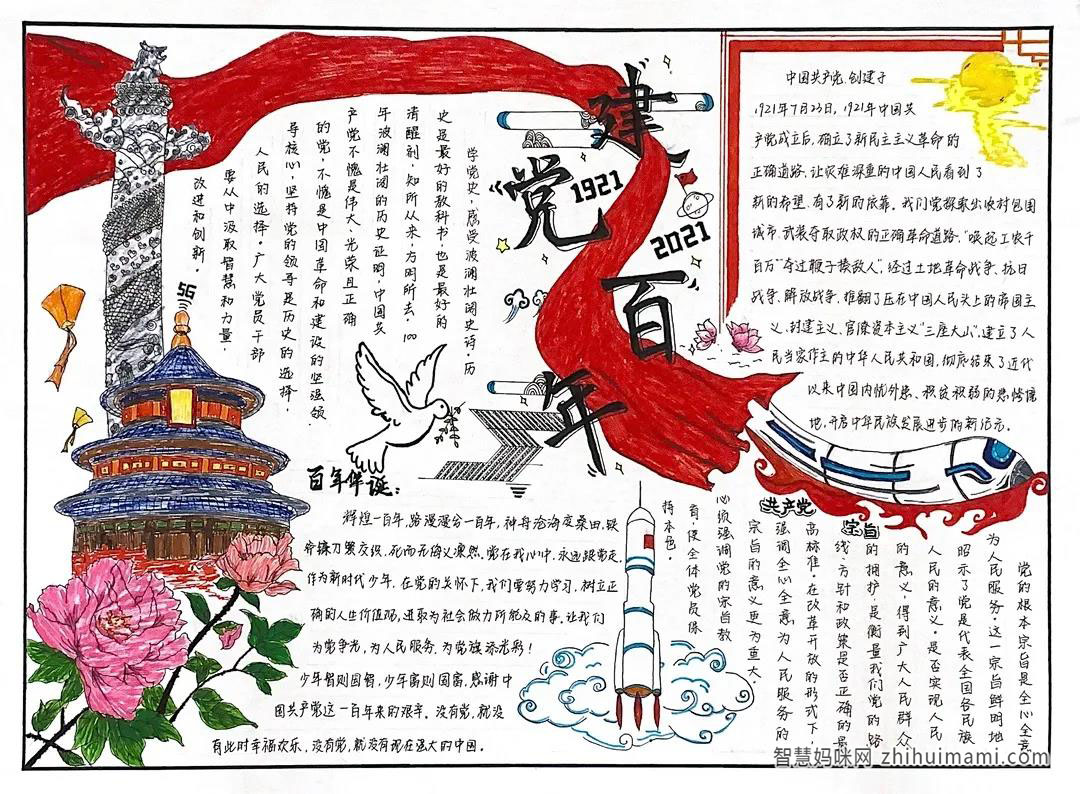 建
党
百
年
1921
2021
5G
学党史，感受波澜壮阔史诗。历
史是最好的教科书，也是最好的
清醒剂，知所从来，方明所去。100
年波澜壮阔的历史证明，中国共
产党不愧是伟大、光荣且正确
的党，不愧是中国革命和建设的坚强领
导核心，坚持党的领导是历史的选择，
人民的选择。广大党员干部
要从中汲取智慧和力量，
改进和创新。
中国共产党，创建于
1921年7月23日，1921年中国共
产党成立后，确立了新民主主义革命的
正确道路，让灾难深重的中国人民看到了
新的希望，有了新的依靠。我们党探索出农村包围
城市，武装夺取政权的正确革命道路，“唤起工农千
百万”“夺过鞭子揍敌人”，经过土地革命战争、抗日
战争、解放战争，推翻了压在中国人民头上的帝国主
义、封建主义、官僚资本主义“三座大山”，建立了人
民当家作主的中华人民共和国，彻底结束了近代
以来中国内忧外患、积贫积弱的悲惨境
地，开启中华民族发展进步的新纪元。
百年华诞：
辉煌一百年，路漫漫分一百年，神舟沧海变桑田，铁
命镰刀要交织，死而无悔义凛然。党在我心中，永远跟党走，
作为新时代少年，在党的关怀下，我们要努力学习，树立正
确的人生价值观，进取为社会做力所能及的事，让我们
为党争光，为人民服务，为党旗添光彩！
少年智则国智，少年富则国富，感谢中
国共产党这一百年来的艰辛。没有党，就没
有此时幸福欢乐，没有党，就没有现在强大的中国。
共产党
宗旨
党的根本宗旨是全心全意
为人民服务。这一宗旨鲜明地
昭示了党是代表全国各民族
人民的意义。是否实现人民
的意义，得到广大人民群众
的拥护，是衡量我们党的路
线、方针和政策是否正确的最
高标准。在改革开放的形式下
强调全心全意为人民服务的
宗旨的意义更为重大。
必须强调党的宗旨教
育，使全体党员保
持本色。
智慧妈咪网 zhihuimami.com